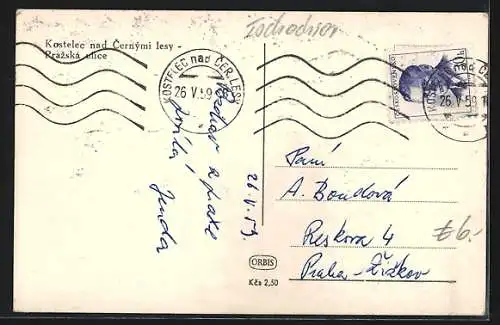 Kostelec nad Černými lesy -
Pražská ulice
KOSTELEC nad ČER. LESY
26 V. 59
Pozdrav z
Jenda
26.V.59.
Paní
A. Boudová
Reskova 4
Praha - Žižkov
ČESKOSLOVENSKO
nad ČE
26. V. 59 1
£6.-
ORBIS
Kčs 2,50